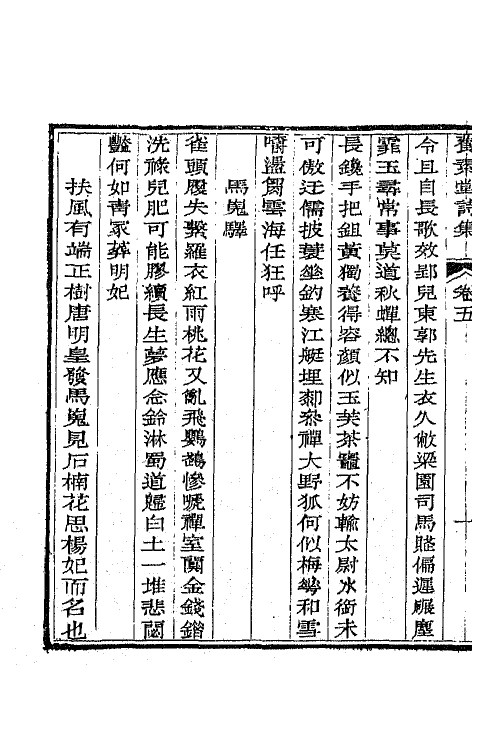 卷五
令且自長歌效郢兒東郭先生衣久敝梁園司馬賤偏遲碾塵
霏玉尋常事莫道秋蟬總不知
長鑱手把鉏黃獨養得容顏似玉芙茶竈不妨輸太尉冰銜未
可傲迂儒披蓑坐釣寒江艇埋劍參禪大野狐何似梅花和雪
嚼盪胷雲海任狂呼
馬嵬驛
雀頭履失繫羅衣紅雨桃花又亂飛鸚鵡慘號禪室閴金錢鎦
洗祿兒肥可能膠續長生夢應金鈴淋蜀道歸白土一堆悲閟
豔何如靑冢葬明妃
扶風有端正樹唐明皇發馬嵬見石楠花思楊妃而名也